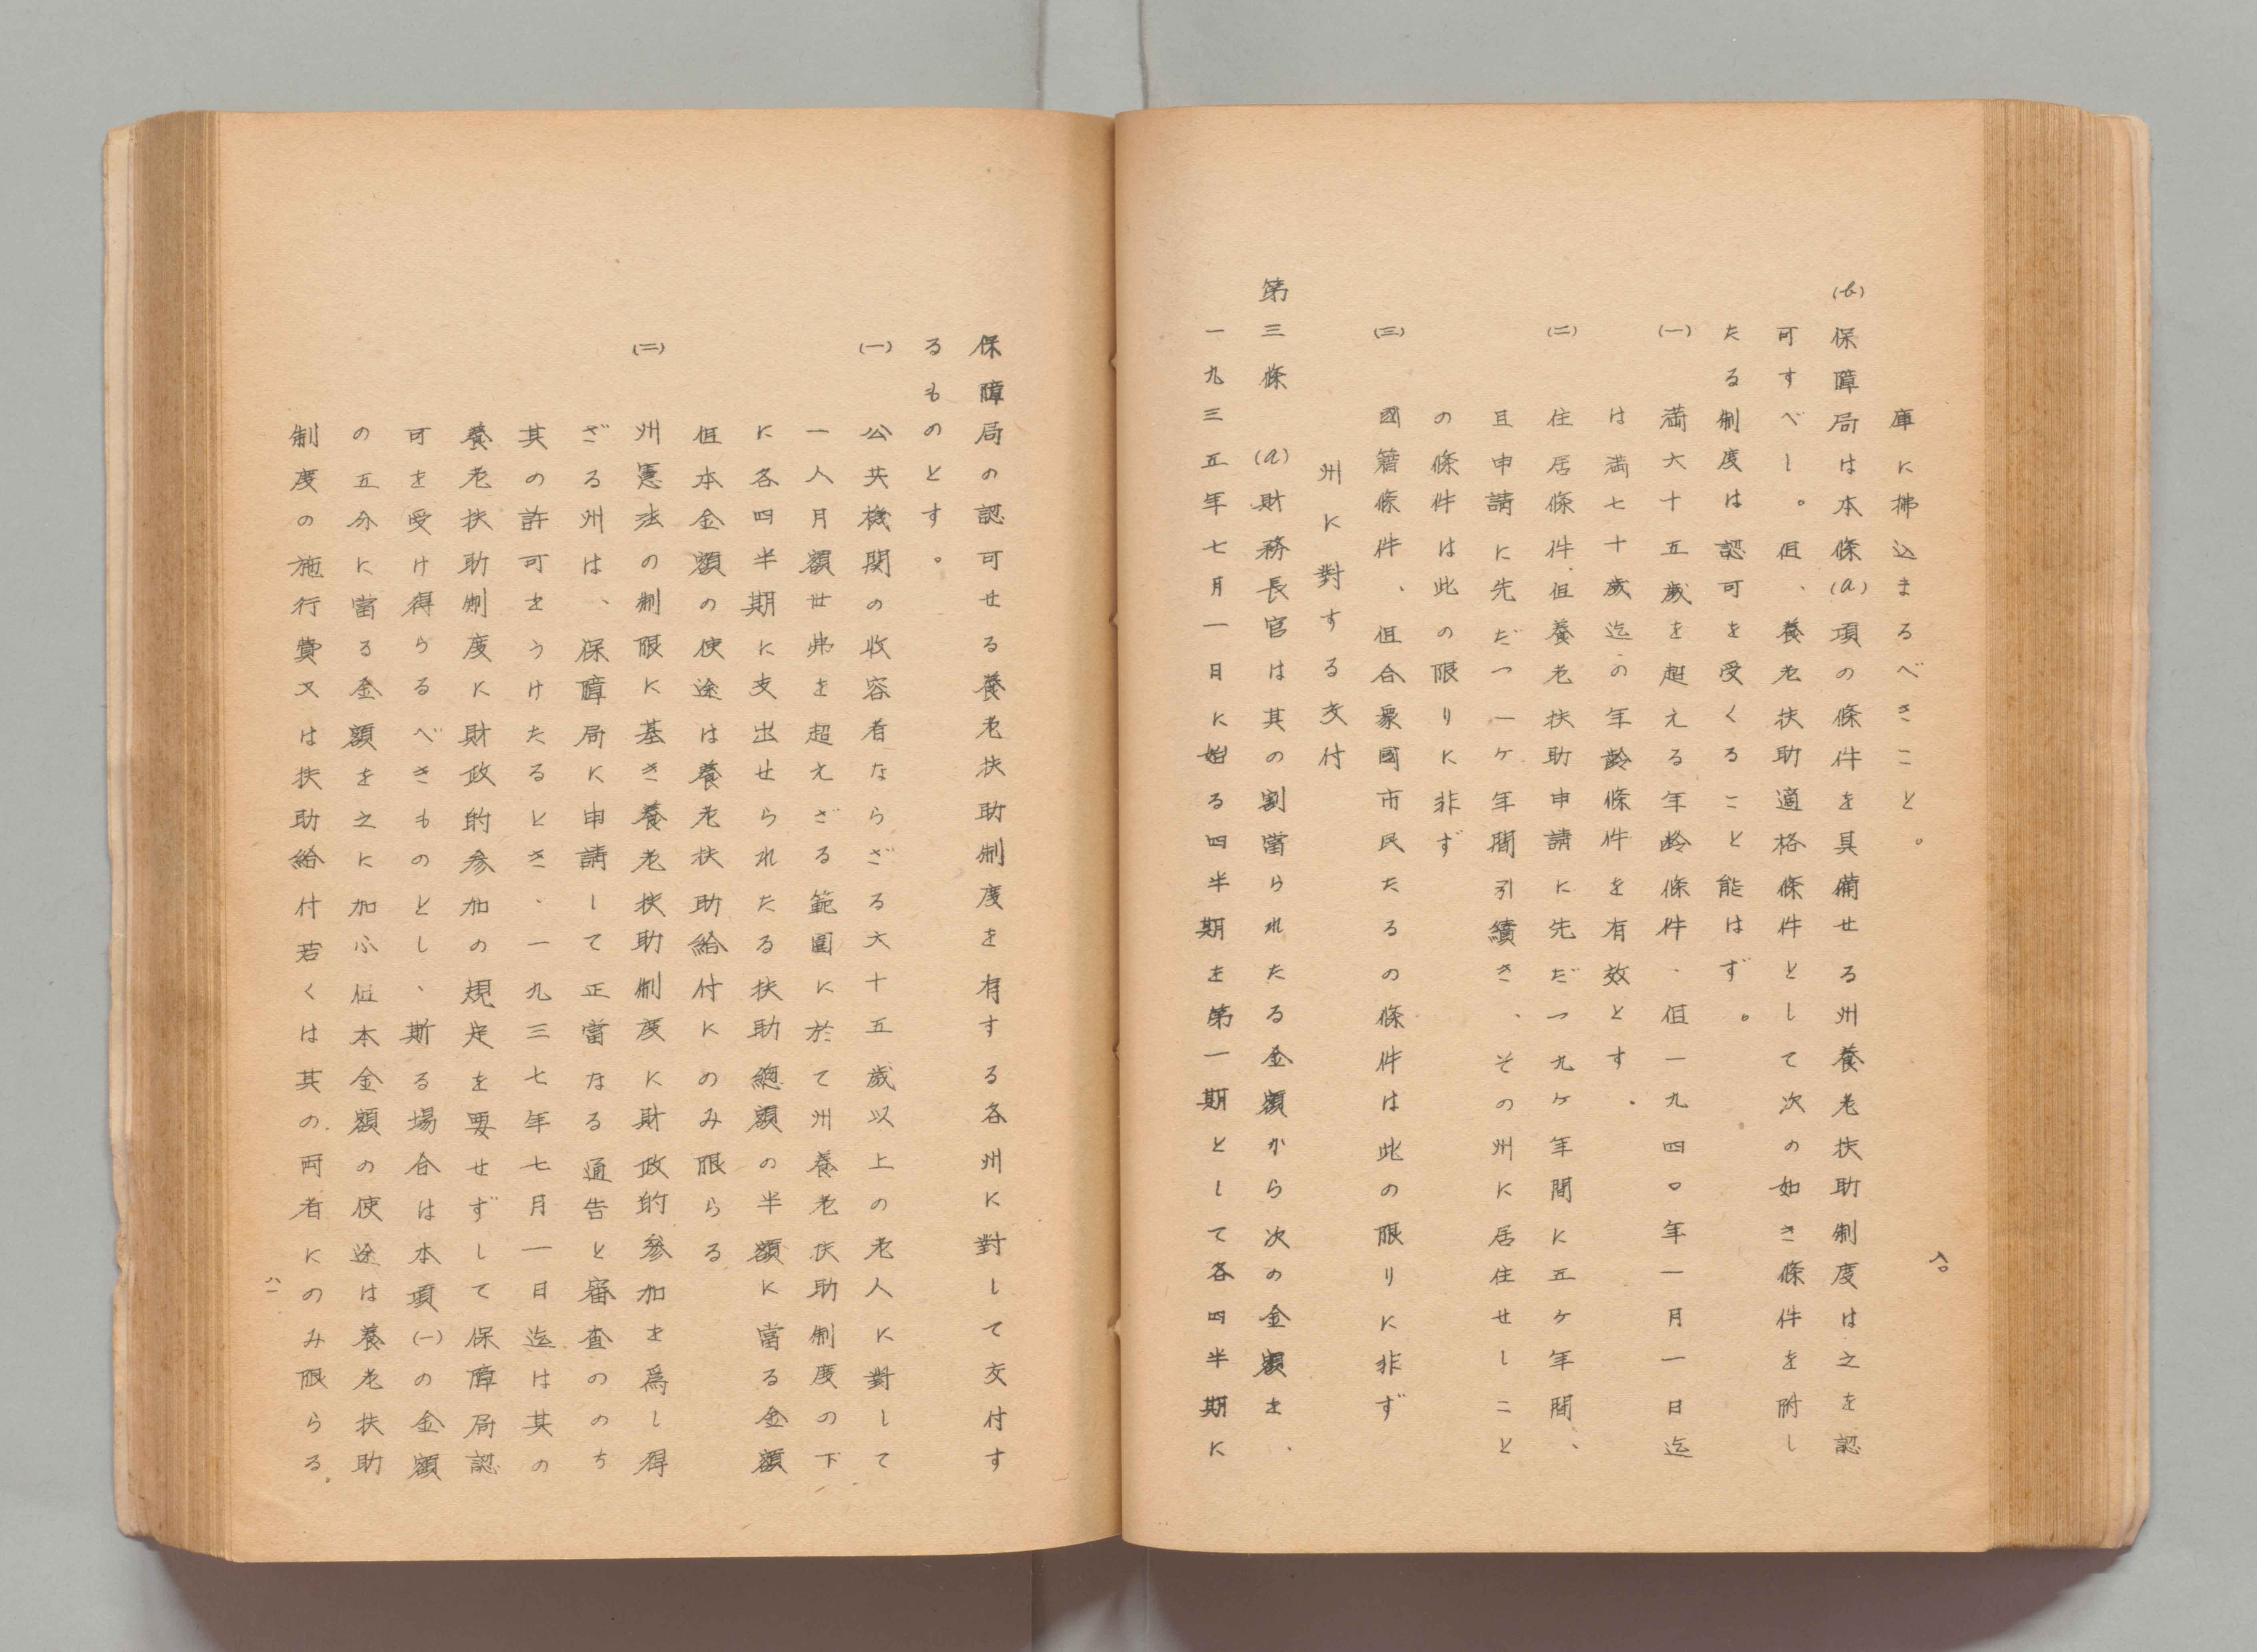 庫に拂込まるべきこと。
(b)保障局は本條(a)項の條件を具備せる州養老扶助制度は之を認
可すべし。但、養老扶助適格條件として次の如き條件を附し
たる制度は認可を受くること能はず。
(一)満六十五歳を超える年齢條件、但一九四〇年一月一日迄
は満七十歳迄の年齢條件を有效とす.
(二)住居條件、但養老扶助申請に先だつ九ヶ年間に五ヶ年間、
且申請に先だつ一ヶ年間引續き、その州に居住せしこと
の條件は此の限りに非ず
(三)國籍條件、但合衆國市民たるの條件は此の限りに非ず
州に對する交付
第三條 (a)財務長官は其の割當られたる金額から次の金額を、
一九三五年七月一日に始る四半期を第一期として各四半期に
八〇
保障局の認可せる養老扶助制度を有する各州に對して交付す
るものとす。
(一)公共機関の收容者ならざる六十五歳以上の老人に對して
一人月額卅弗を超えざる範圍に於て州養老扶助制度の下
に各四半期に支出せられたる扶助總額の半額に當る金額
但本金額の使途は養老扶助給付にのみ限らる
(二)州憲法の制限に基き養老扶助制度に財政的參加を爲し得
ざる州は、保障局に申請して正當なる通告と審査ののち
其の許可をうけたるとき、一九三七年七月一日迄は其の
養老扶助制度に財政的參加の規定を要せずして保障局認
可を受け得らるべきものとし、斯る場合は本項(一)の金額
の五分に當る金額を之に加ふ但本金額の使途は養老扶助
制度の施行費又は扶助給付若くは其の両者にのみ限らる.
八一